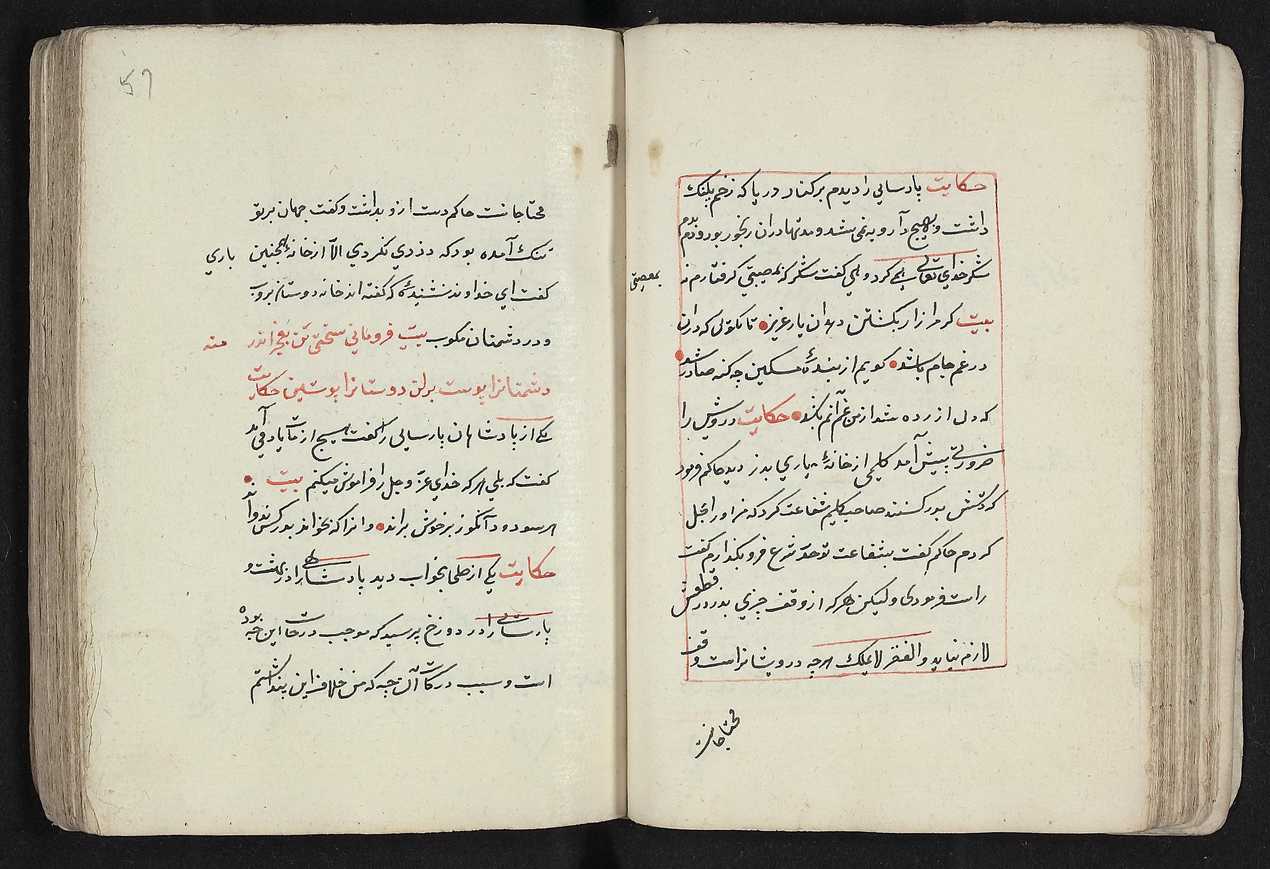 حکایت پارسایی را دیدم بر کنار دریا که زخم پلنگ
داشت و بهیچ دارو به نمی شد و مدتها دران رنجور بود و دم بدم
شکر خدای تعالی همی کرد و همی گفت شکر که بمصیبتی گرفتارم نه
بمعصیتی
بیت گر مرا زار بکشتن دهد آن یار عزیز تا نکوئی که دران
دم غم جانم باشد کویم از بندهٔ مسکین چه کنه صادر شد
که دل ازرده شد از من غم آنم باشد حکایت درویش را
ضرورتی پیش آمد کلیمی از خانهٔ یاری بدزدید حاکم فرمود
که دستش بدر کنند صاحب کلیم شفاعت کرد که من او را بحل
کردم حاکم کفت بشفاعت تو حد شرع فرو نکذارم کفت
راست فرمودی ولیکن هرکه از وقف چیزی بدزدد قطعش
لازم نیاید والفقر لا یملک هرچه درویشانراست وقف
محتاجانست
57
محتاجانست حاکم دست ازو بداشت و کفت جهان بر تو
تنک آمده بود که دزدی نکردی الا از خانهٔ همچنین یاری
کفت ای خداوند نشنیدهٔ که کفته اند خانه دوستان بروب
و در دشمنان مکوب بیت فرومانی بسختی تن بعجز اندر مده
دشمنانرا پوست برکن دوستانرا پوستین حکایت
یکی از پادشاهان پارسایی را کفت هیچ از مات یاد می آید
کفت که بلی هرکه خدای عز و جل را فراموش میکنم بیت
هر سو دود آنکوز بر خوش براند وانرا که بخواند بدر کس ندواند
حکایت یکی از صلحا بخواب دید پادشاهی را در بهشت و
پارسایی را در دوزخ پرسید که موجب درجات این چه بوده
است و سبب درکات آن چه که من خلاف این پنداشتم